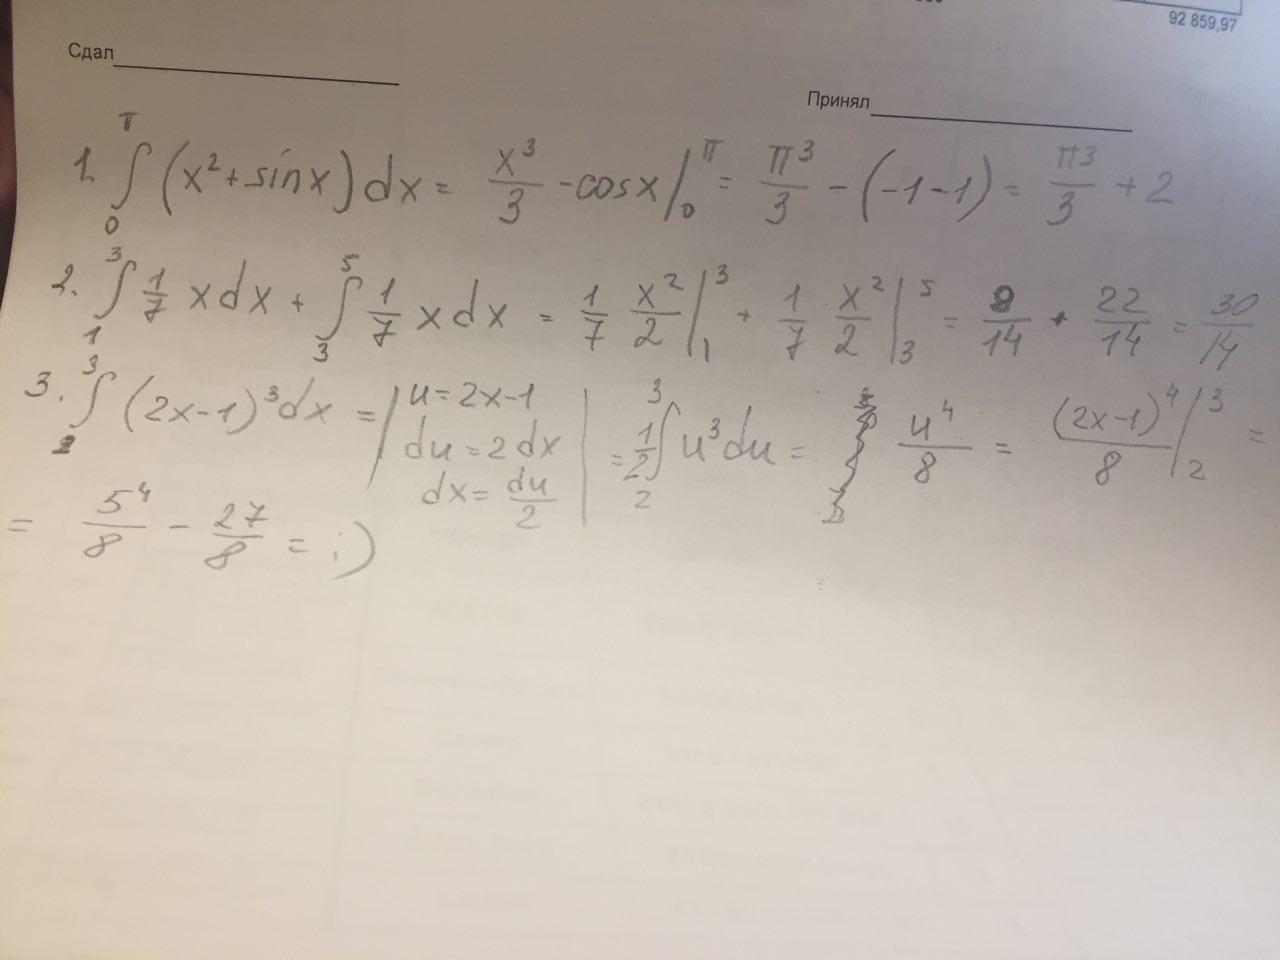 92 859,97
Сдал
Принял
1. ∫₀^π (x² + sinx) dx = x³/3 - cosx |₀^π = π³/3 - (-1-1) = π³/3 + 2
2. ∫₁³ 1/7 x dx + ∫₃⁵ 1/7 x dx = 1/7 x²/2 |₁³ + 1/7 x²/2 |₃⁵ = 8/14 + 22/14 = 30/14
3. ∫₂³ (2x-1)³ dx = | u = 2x-1 du = 2 dx dx = du/2 | = 1/2 ∫₂³ u³ du = u⁴/8 = (2x-1)⁴/8 |₂³ =
= 5⁴/8 - 27/8 = ;)